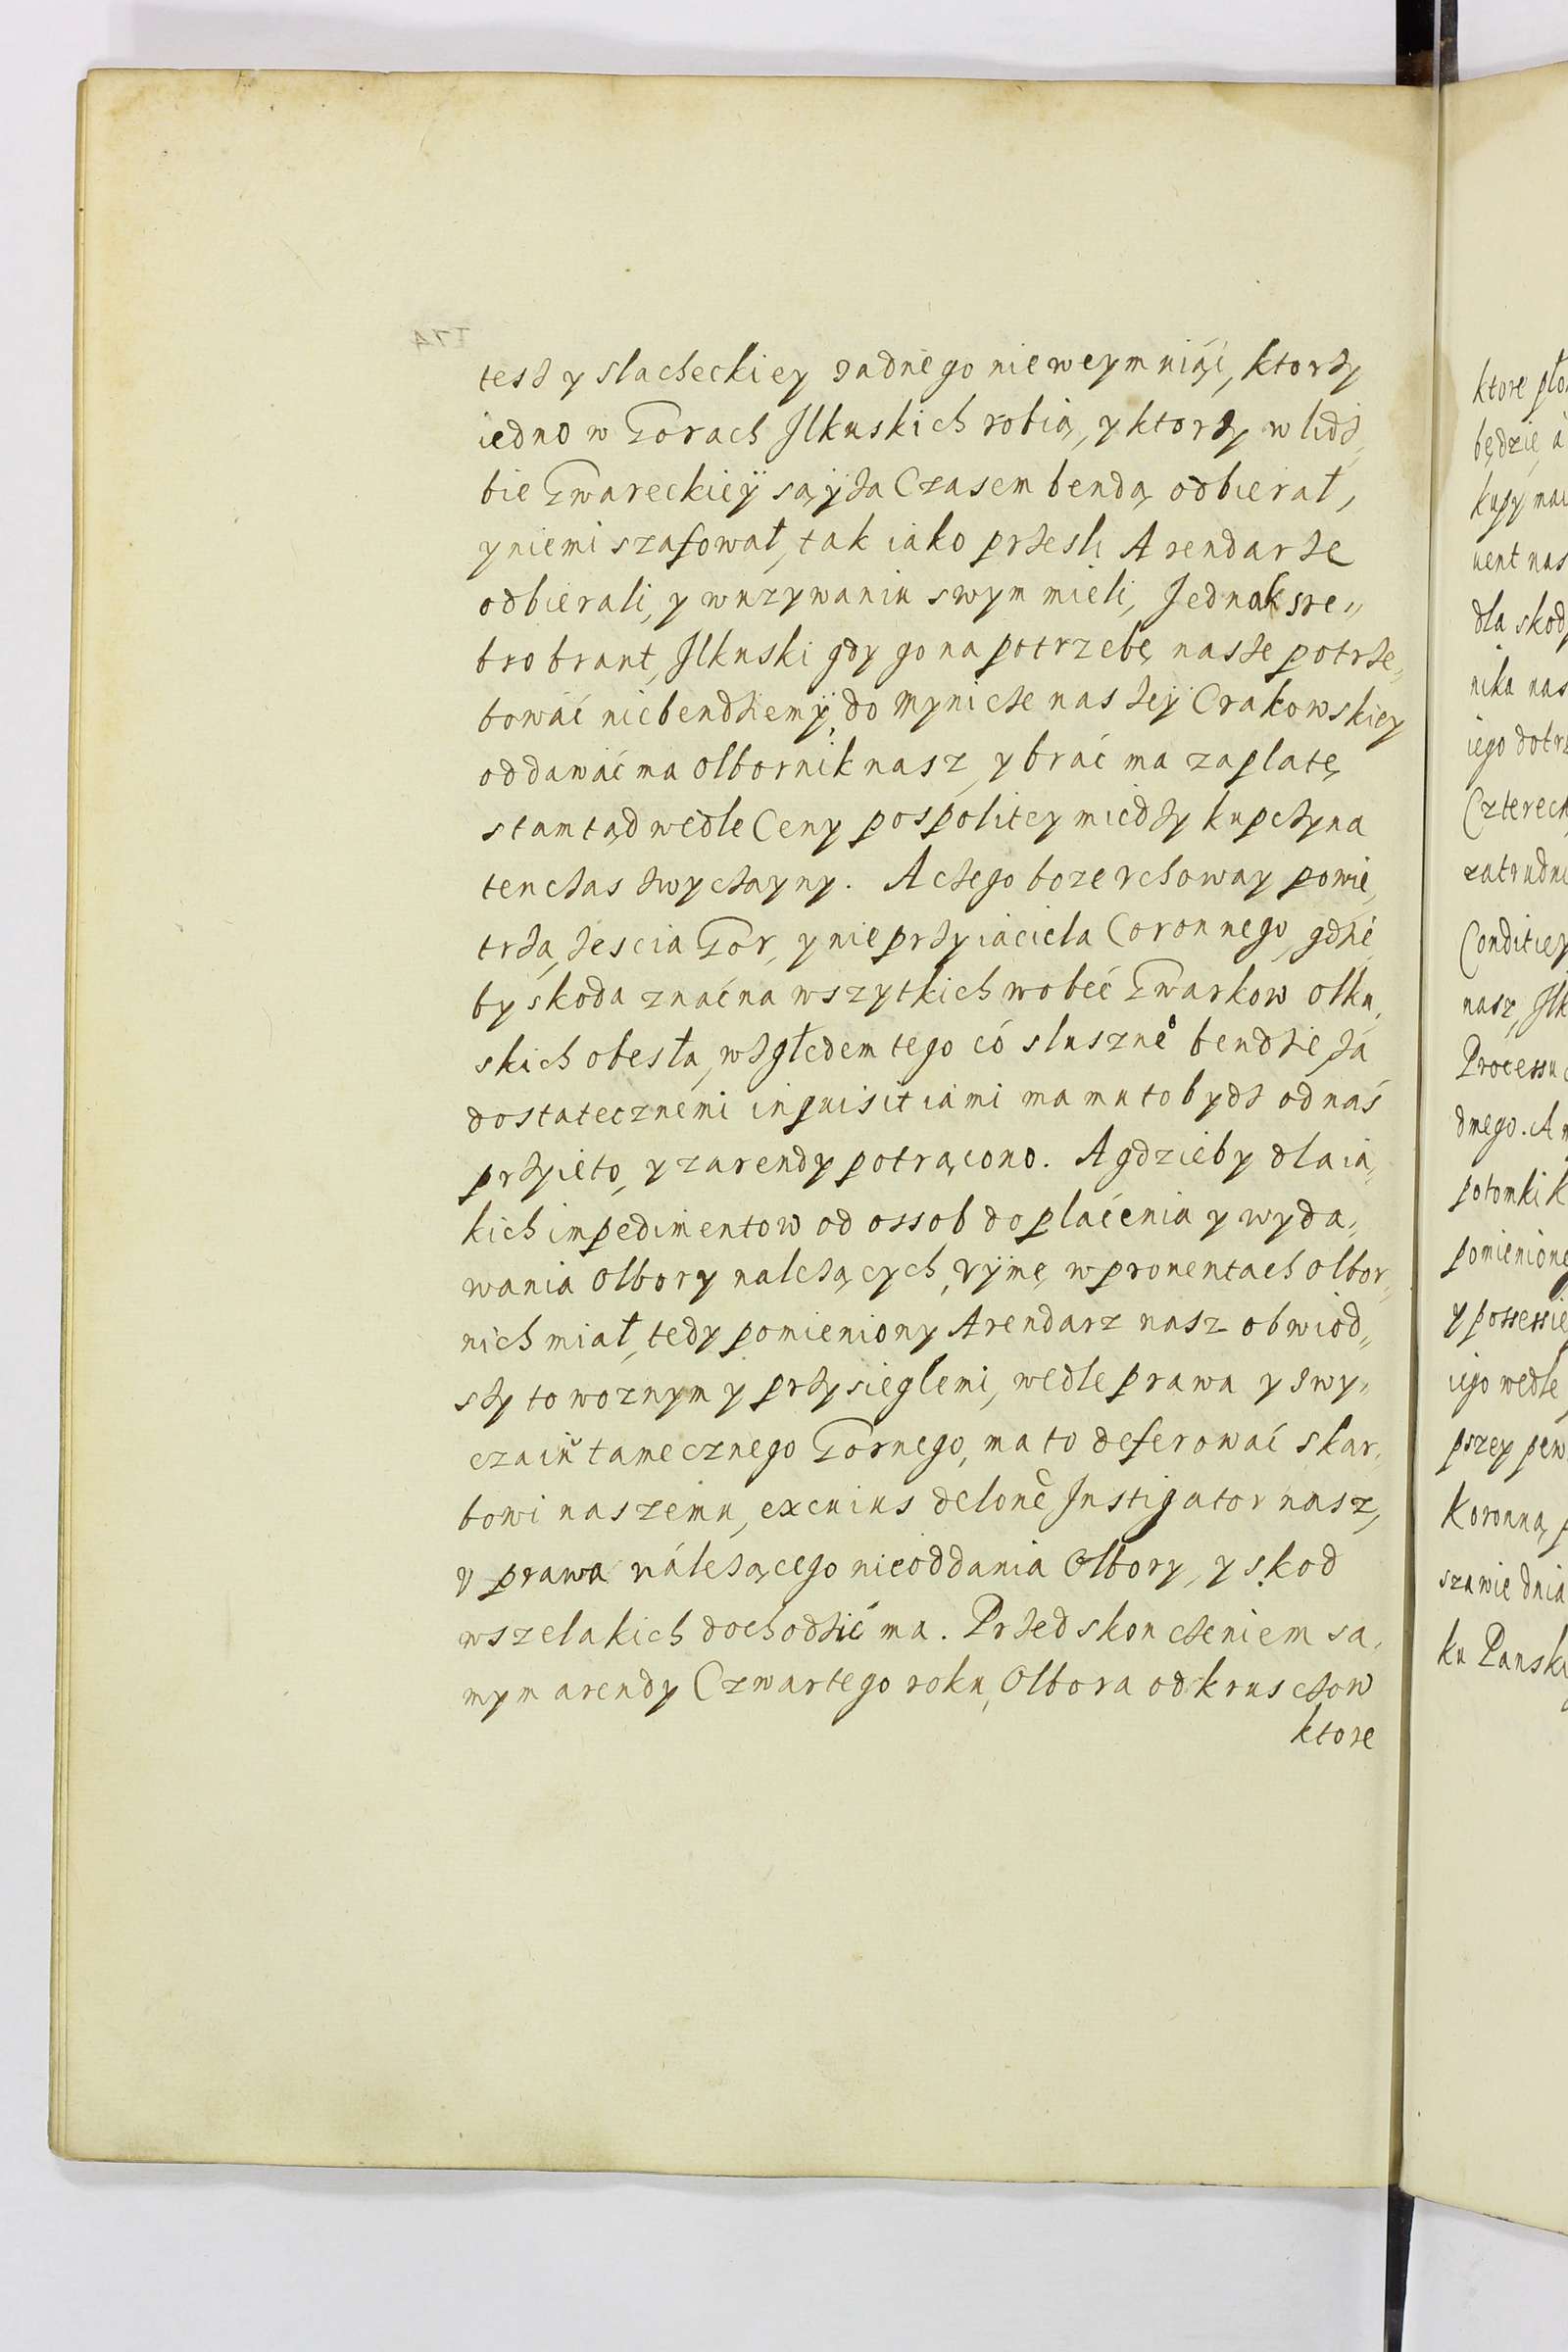 tesz y slacheckiey zadnego nieweymniąć, ktorzy
iedno w Gorach Ilkuskich robią, y ktorzy w lidz„
bie Gwareckieÿ są, ÿ za Czasem bendą odbierał,
y niemi szafował, tak iako przesli Arendarze
odbierali, y wuzywaniu swym mieli, Jednak sre„
bro brant, Ilkuski gdy go na potrzebę nasze potrze„
bowáć niebendziemÿ, do Mynicze naszeÿ Crakowskiey
oddawáć ma Olbornik nasz, y bráć ma zaplatę
stamtąd wedle Ceny pospolitey miedzy kupczy na
tenczas zwyczayny. A czego boze vchoway powie„
trzá, zescia Gor, y nieprzyiaciela Coronnego, gdzie
by skoda znaćna wszytkich wobeć Gwarkow olku„
skich obesła, względem tego có sluszne bendzie zá
dostatecznemi inquisitiami ma mu to bydz od náś
przyieto, y zarendy potrącono. A gdzieby dla ia„
kich impedimentow od ossob do pláćenia y wyda„
wania Olbory nalezących, vÿmę w prouentach olbor„
nich miał, tedy pomieniony Arendarz nasz obwiod„
szy to woznym y przysieglemi, wedle prawa y zwy„
czaiu tamecznego Gornego, ma to deferowáć skar„
bowi naszemu, ex cuius delone Instigator nasz,
v prawa nálezącego nieoddania Olbory, y skod
wszelakich dochodzić ma. Przed skonczeniem sa„
mym arendy Czwartego roku, Olbora od kruscow
ktore
ktore
będzie
nika nas
Czterech
Conditiey
nasz, Ilk
Processu
dnego. A
potomki k
pomienione
y possessie
iego wedle
Koronną
szawie dnia